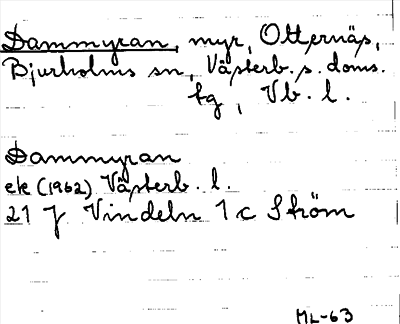 Dammyran, myr, Otternäs,
Bjurholms sn, Västerb. s. doms.
tg, Vb. l.
Dammyran
ek (1962) Västerb. l.
21 J Vindeln 1 c Ström
ML-63